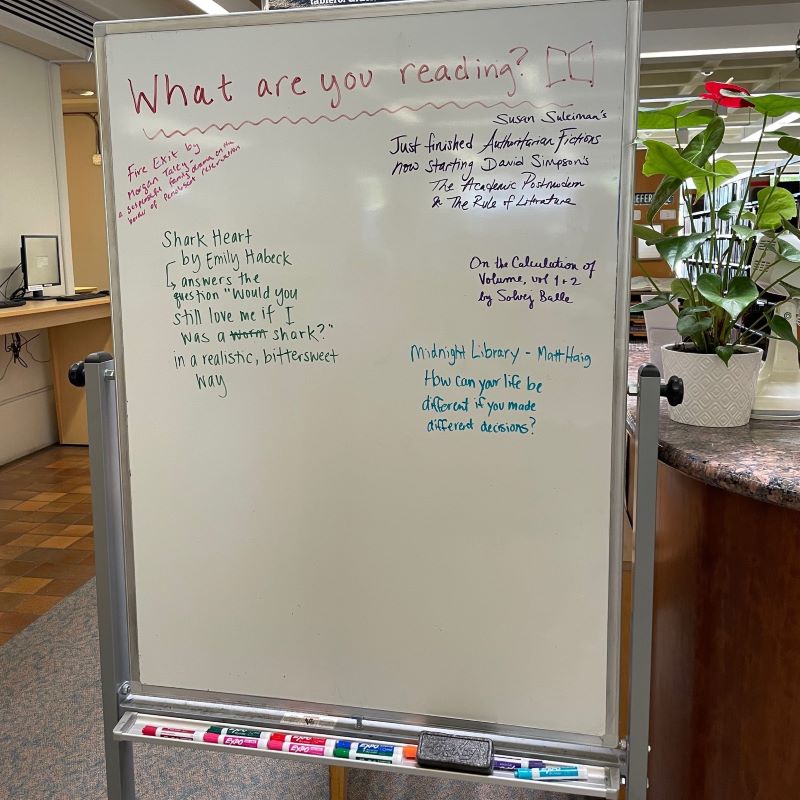 What are you reading?
Fire Exit by
Morgan Talty -
a suspenseful family drama on the
border of Penobscot reservation
Susan Suleiman's
Just finished Authoritarian Fictions
now starting David Simpson's
The Academic Postmodern
& The Rule of Literature
Shark Heart
by Emily Habeck
answers the
question "Would you
still love me if I
was a worm shark?"
in a realistic, bittersweet
way
On the Calculation of
Volume, vol 1+2
by Solvej Balle
Midnight Library - Matt Haig
How can your life be
different if you made
different decisions?
EXPO
EXPO
EXPO
EXPO